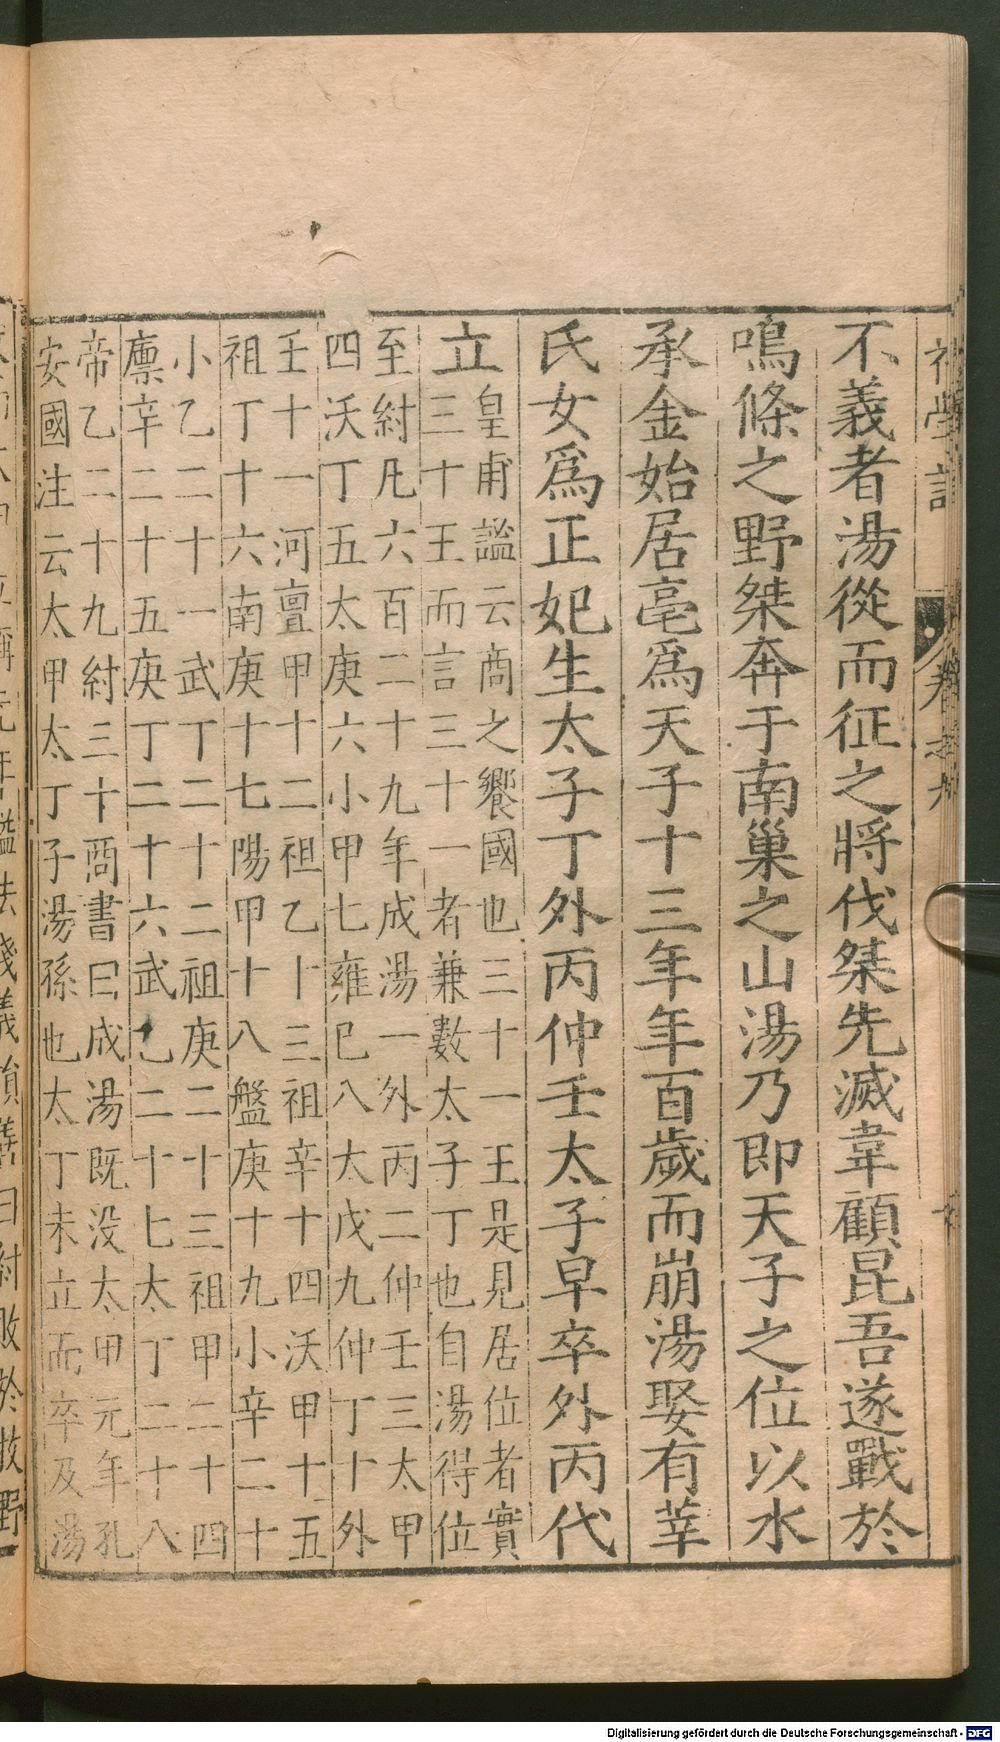 不義者湯從而征之將伐桀先滅韋顧昆吾遂戰於
鳴條之野桀奔于南巢之山湯乃即天子之位以水
承金始居亳爲天子十三年年百歲而崩湯娶有莘
氏女爲正妃生太子丁外丙仲壬太子早卒外丙代
立
皇甫謐云商之饗國也三十一王是見居位者實
三十王而言三十一者兼數太子丁也自湯得位
至紂凡六百二十九年成湯一外丙二仲壬三太甲
四沃丁五太庚六小甲七雍巳八大戊九仲丁十外
壬十一河亶甲十二祖乙十三祖辛十四沃甲十五
祖丁十六南庚十七陽甲十八盤庚十九小辛二十
小乙二十一武丁二十二祖庚二十三祖甲二十四
廪辛二十五庚丁二十六武乙二十七太丁二十八
帝乙二十九紂三十商書曰成湯既没太甲元年孔
安國注云太甲太丁子湯孫也太丁未立而卒及湯
Digitalisierung gefördert durch die Deutsche Forschungsgemeinschaft - DFG